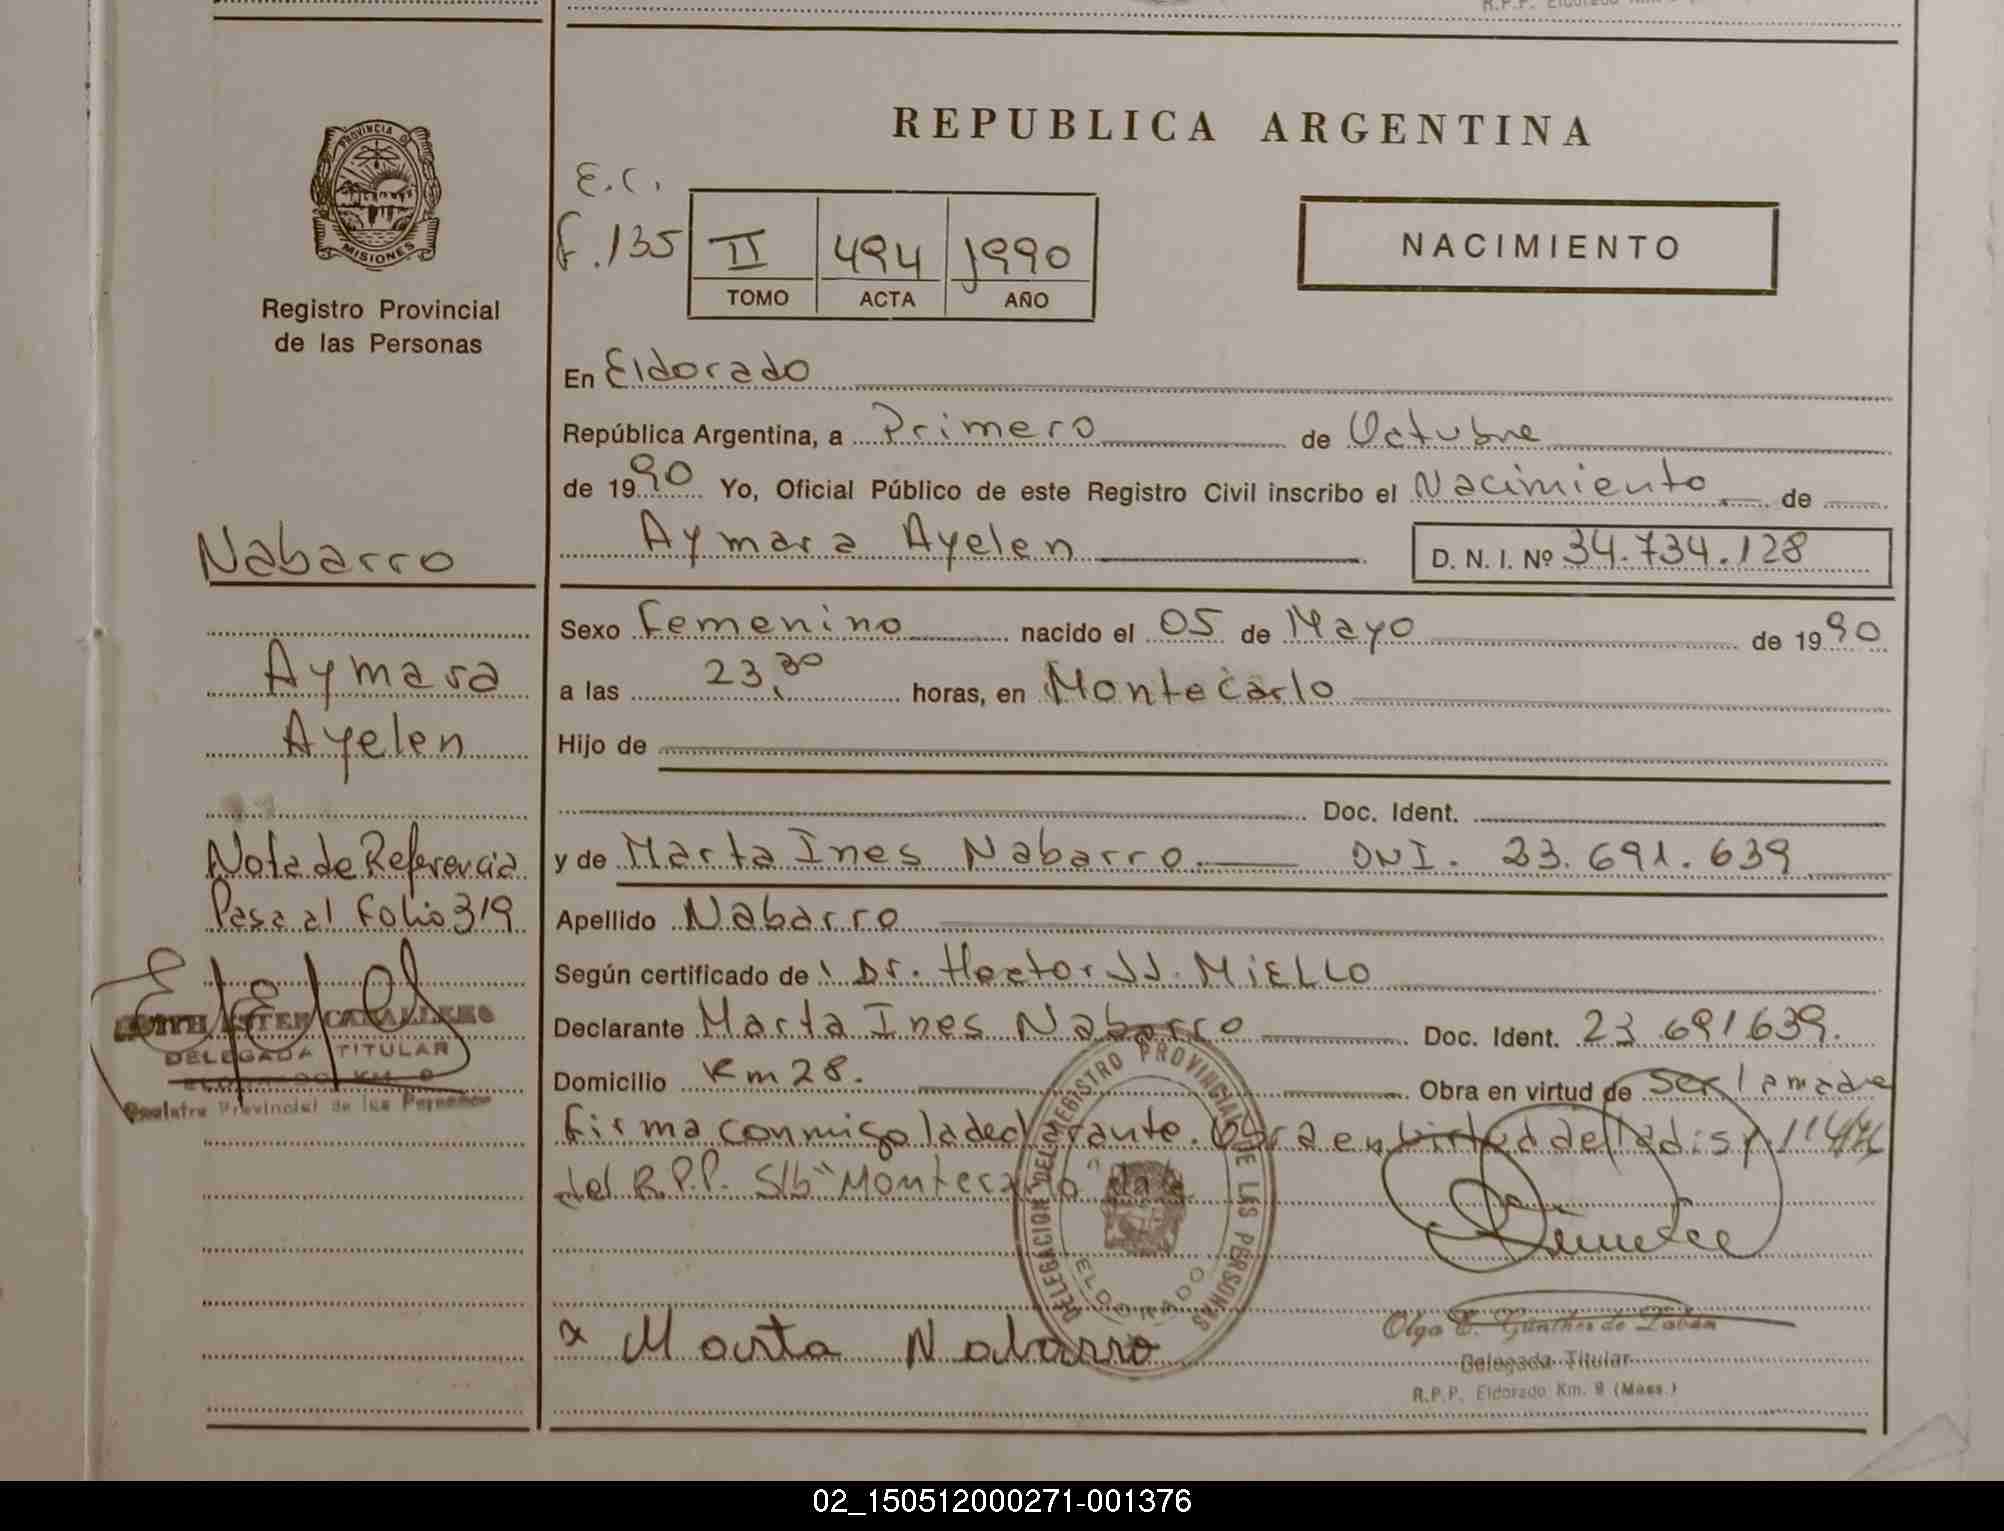 R.P.P. Eldorado
REPUBLICA ARGENTINA
PROVINCIA DE
MISIONES
Registro Provincial
de las Personas
E.C.
F.135
II 494 1990
TOMO ACTA AÑO
NACIMIENTO
En Eldorado
República Argentina, a Primero de Octubre
de 1990 Yo, Oficial Público de este Registro Civil inscribo el Nacimiento de
Nabarro
Aymara Ayelen D. N. I. Nº 34.734.128
Sexo Femenino nacido el 05 de Mayo de 1990
Aymara
a las 23,30 horas, en Montecarlo
Ayelen
Hijo de
Doc. Ident.
Nota de Referencia
y de Marta Ines Nabarro DNI. 23.691.639
Pasa al Folio 319
Apellido Nabarro
Según certificado de Dr. Hector JJ. MiELLO
ESTER CABALLERO
Declarante Marta Ines Nabarro Doc. Ident. 23.691639.
DELEGADA TITULAR
Domicilio Km 28. Obra en virtud de ser la madre
Registro Provincial de las Personas
firma conmigo la declarante. Obra en virtud de la disp.
del R.P.P. S/b "Montecarlo"
DELEGACION DEL REGISTRO PROVINCIAL DE LAS PERSONAS
ELDORADO
x Marta Nabarro
Olga E. Günther de
Delegada Titular
R.P.P. Eldorado Km. 9 (Mnes.)
02_150512000271-001376